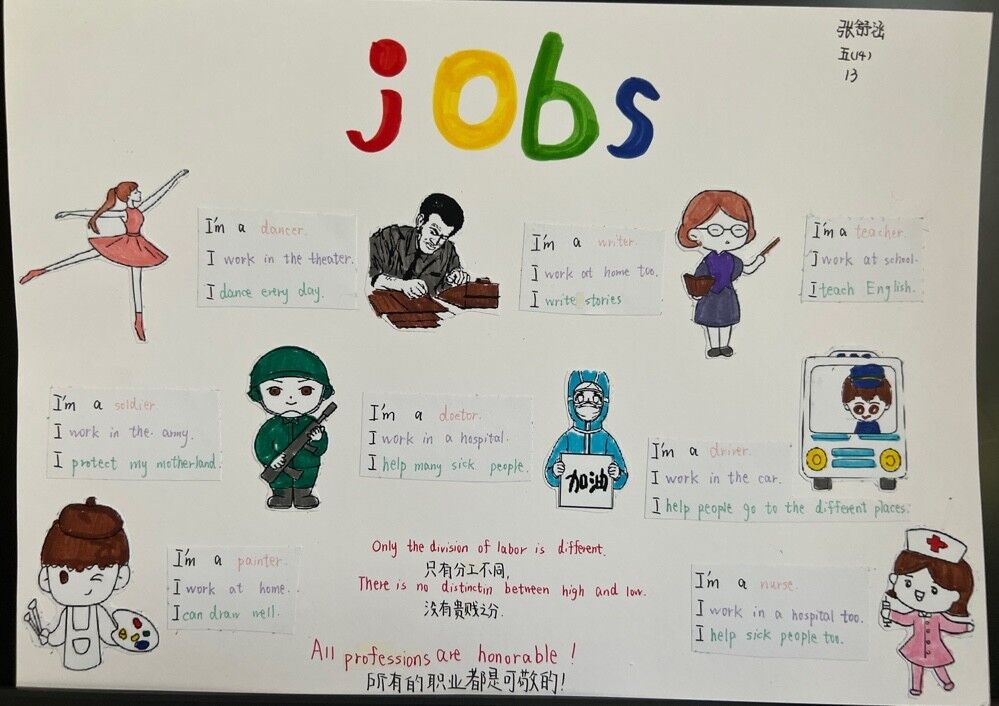 jobs
张舒涵
五(14)
13
I'm a dancer.
I work in the theater.
I dance every day.
I'm a writer.
I work at home too.
I write stories
I'm a teacher.
I work at school.
I teach English.
I'm a soldier
I work in the army.
I protect my motherland.
I'm a doctor.
I work in a hospital.
I help many sick people.
加油
I'm a driver.
I work in the car.
I help people go to the different places.
I'm a painter.
I work at home.
I can draw well.
Only the division of labor is different.
只有分工不同,
There is no distinctin between high and low.
没有贵贱之分.
All professions are honorable!
所有的职业都是可敬的!
I'm a nurse.
I work in a hospital too.
I help sick people too.